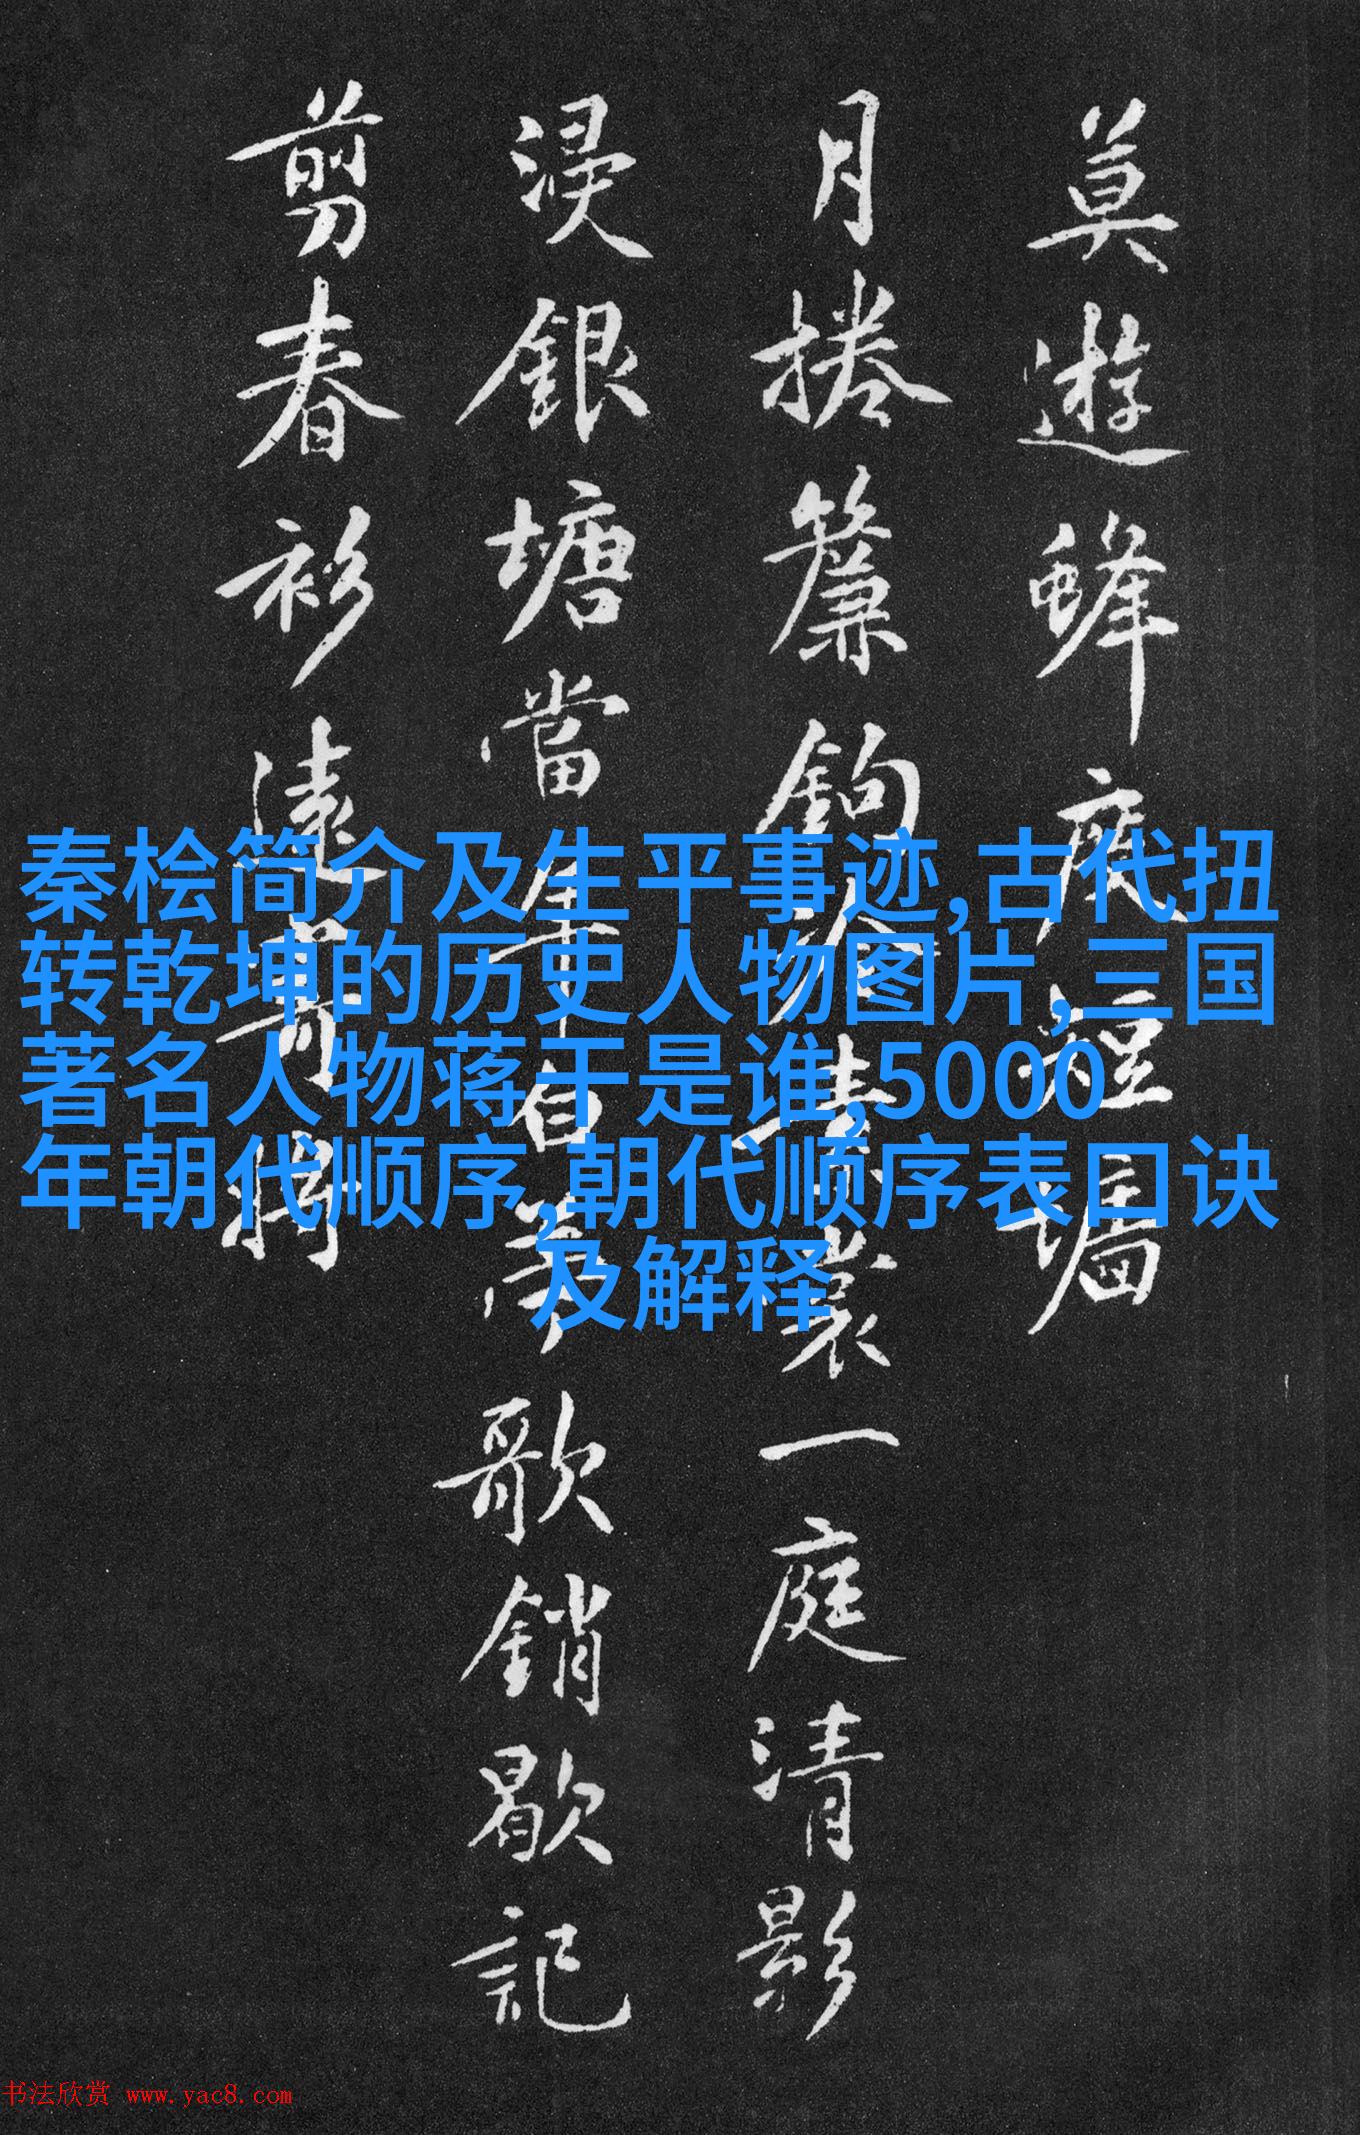 莫遊蜂度短墙
月捲簾鉤人裳一庭清影
浸銀塘當年自歌銷歇記
剪春衫遠寄將
秦桧简介及生平事迹,古代扭
转乾坤的历史人物图片,三国
著名人物蒋干是谁,5000
年朝代顺序,朝代顺序表口诀
及解释
书法欣赏 www.yac8.com